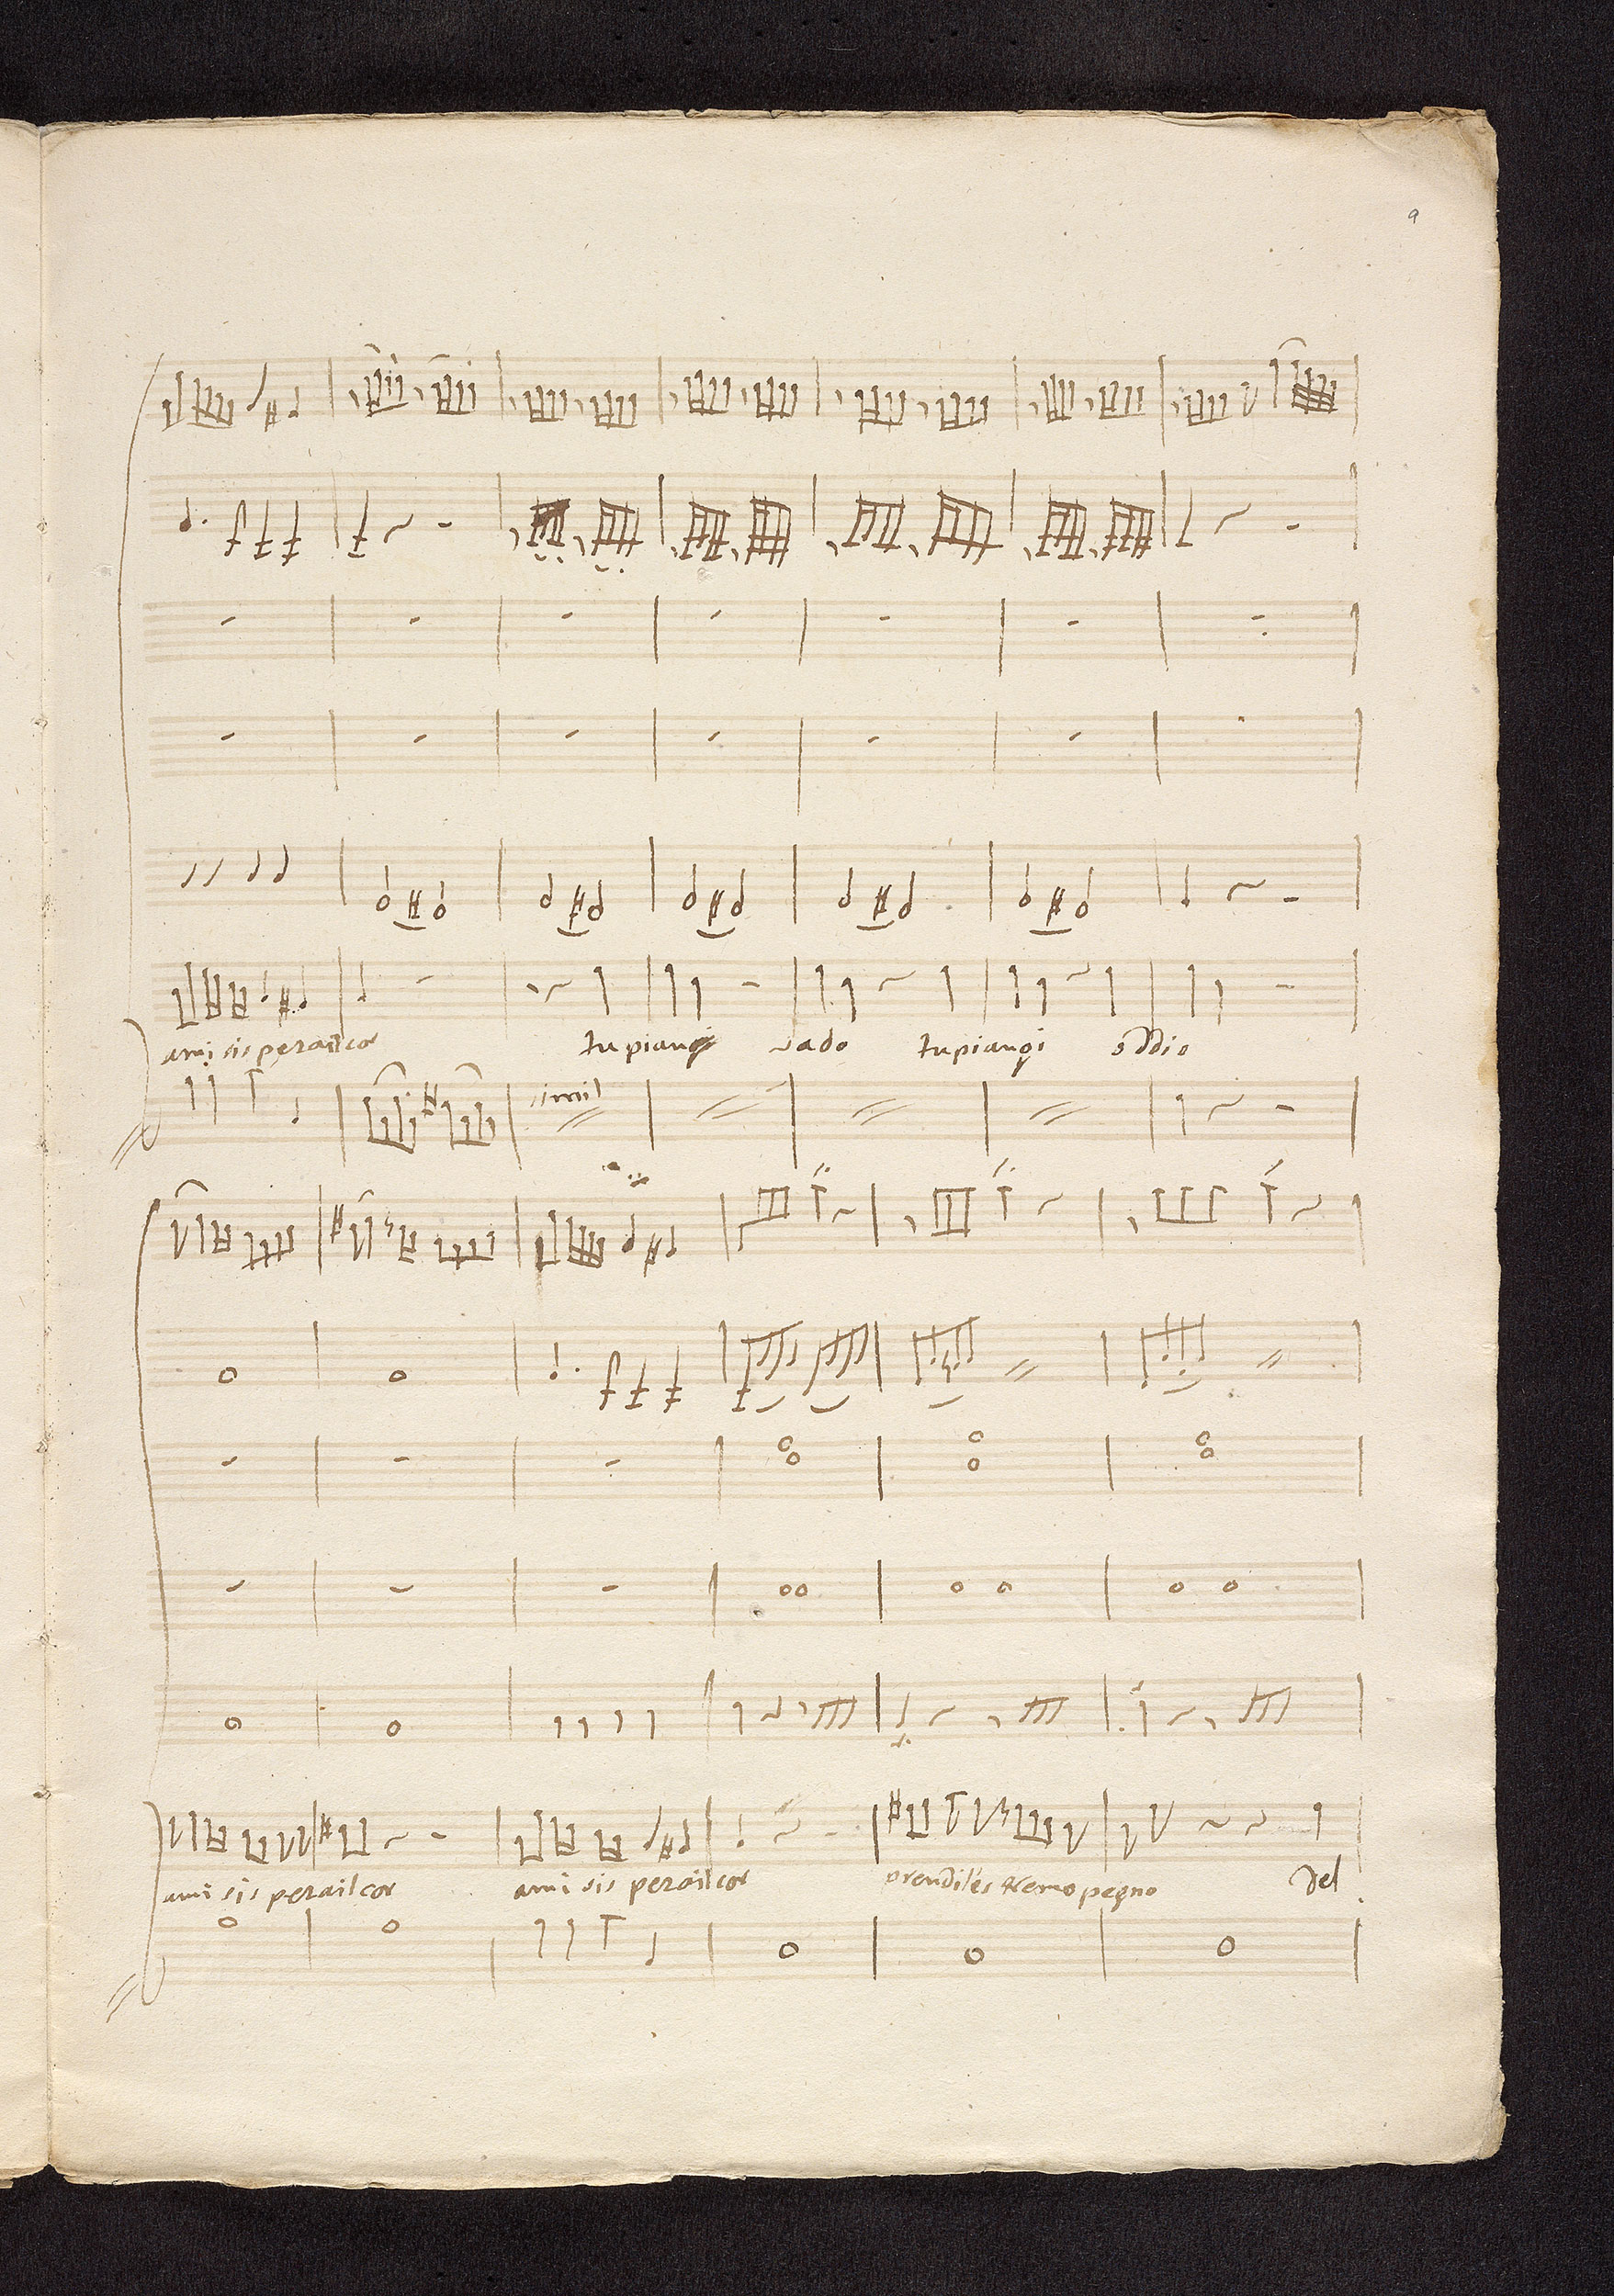 9
ami sis perail cor tu piangi vado tu piangi oddio
simil
ami sis perail cor ami sis perail cor prendiles tremo pegno Del